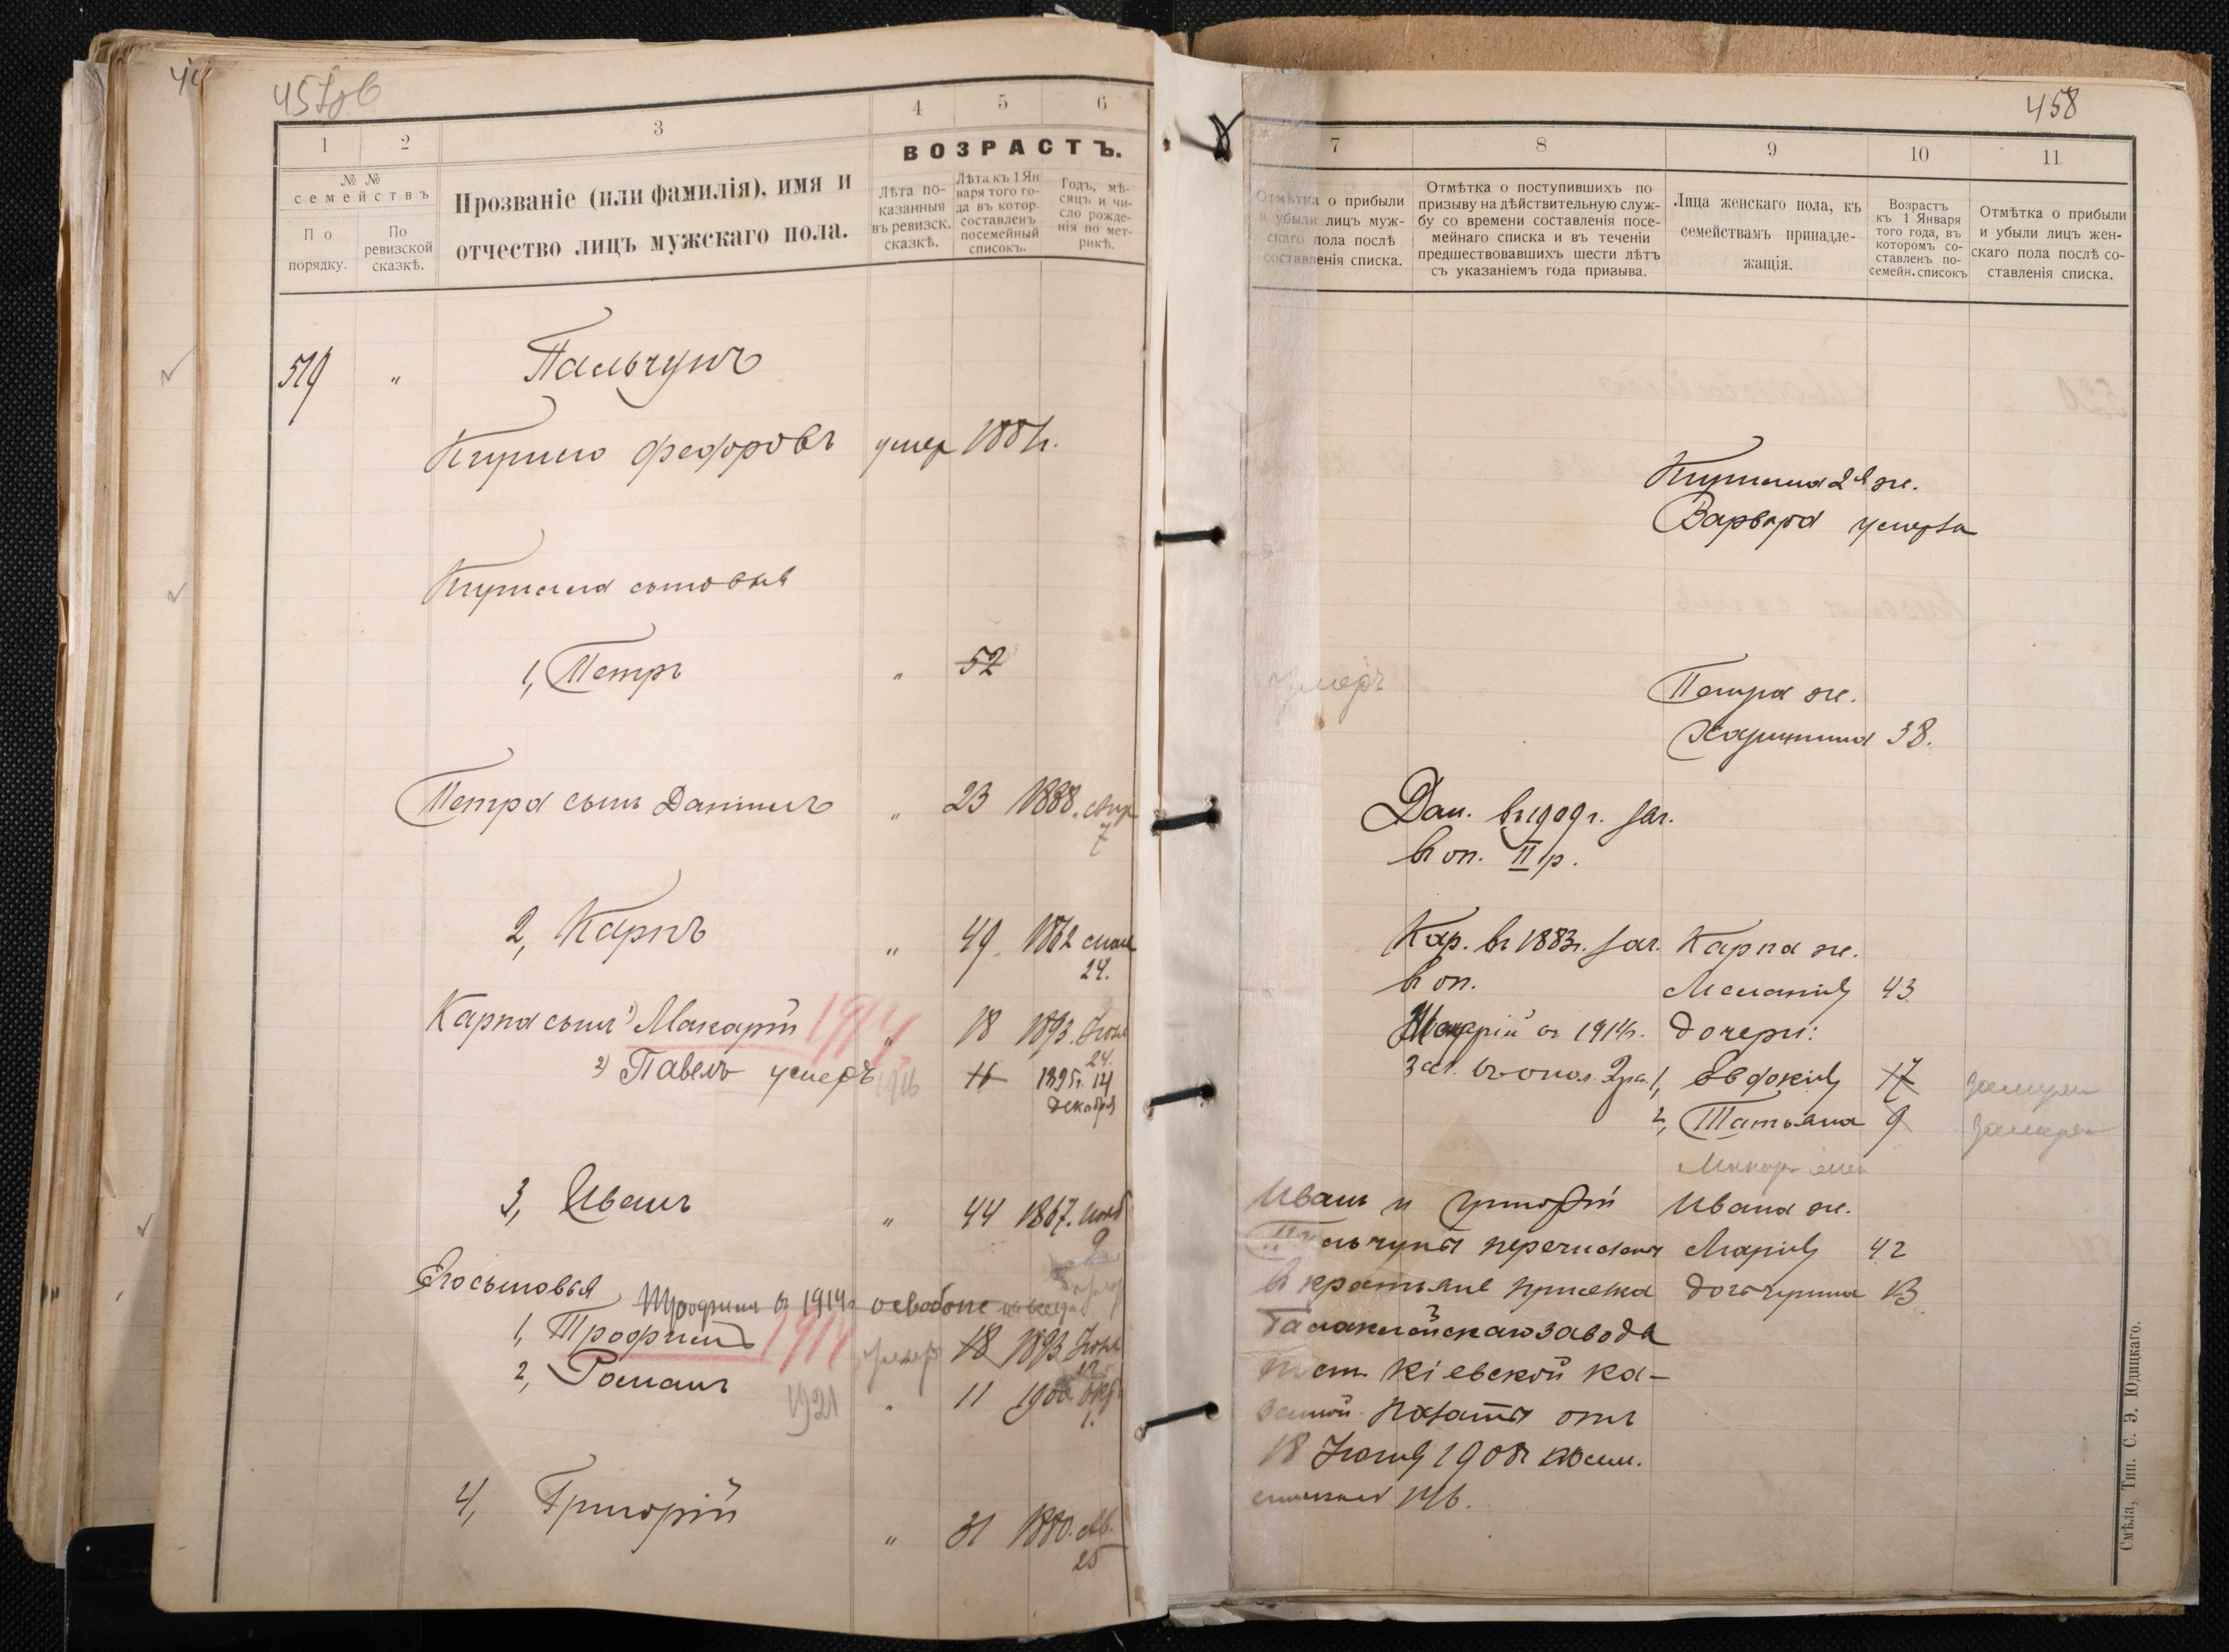 457об
1
2
3
4
5
6
№ №
семействъ
По порядку.
По ревизской сказкѣ.
Прозваніе (или фамилія), имя и
отчество лицъ мужскаго пола.
ВОЗРАСТЪ.
Лѣта по-
казанныя
въ ревизск.
сказкѣ.
Лѣта къ 1 Ян
варя того го-
да въ котор.
составленъ
посемейный
списокъ.
Годъ, мѣ-
сяцъ и чи-
сло рожде-
нія по мет-
рикѣ.
519 "
Пальчунъ
Федоровъ умер
сыновья
1, Петръ " 52
Петра сынъ Даніилъ " 23 1888.
7
2, Карпъ " 49 1862
24.
Карпа сынъ 1) Макарій 1914 " 18 1893. Іюня
24.
2) Павелъ умеръ 1916 16 1895г. 14
декабря
3, Иванъ " 44 1867. нояб
9
Его сыновья
Трофима въ 1914г
1, Трофимъ 1914 умеръ 18 1893 Іюня
2, Романъ 1921 " 11 1900 окт
1.
4, Григорій " 31 1880. Ав.
25
458
7
8
9
10
11
Отмѣтка о прибыли
и убыли лицъ муж-
скаго пола послѣ
составленія списка.
Отмѣтка о поступившихъ по
призыву на дѣйствительную служ-
бу со времени составленія посе-
мейнаго списка и въ теченіи
предшествовавшихъ шести лѣтъ
съ указаніемъ года призыва.
Лица женскаго пола, къ
семействамъ принадле-
жащія.
Возрастъ
къ 1 Января
того года, въ
которомъ со-
ставленъ по-
семейн. списокъ
Отмѣтка о прибыли
и убыли лицъ жен-
скаго пола послѣ со-
ставленія списка.
2я ж.
Варвара умерла
умеръ
Петра ж.
Харитина 38.
Дан. въ 1909г. зач.
въ оп. II р.
Кар. въ 1883г. зач.
въ оп.
Карпа ж.
Меланія 43
Макарій въ 1914г.
зач. въ опол. 2 ра.
дочери:
1, Евдокія 17 замужем
2, Татьяна 9 замужем
Иванъ и Григорій
Пальчуны перечислены
в крестьяне
завода
Кіевской ка-
зенной палаты отъ
18 Іюня 1908г
146.
Ивана ж.
Марія 42
дочь 13
Смѣла, Тип. С. Э. Юдицкаго.